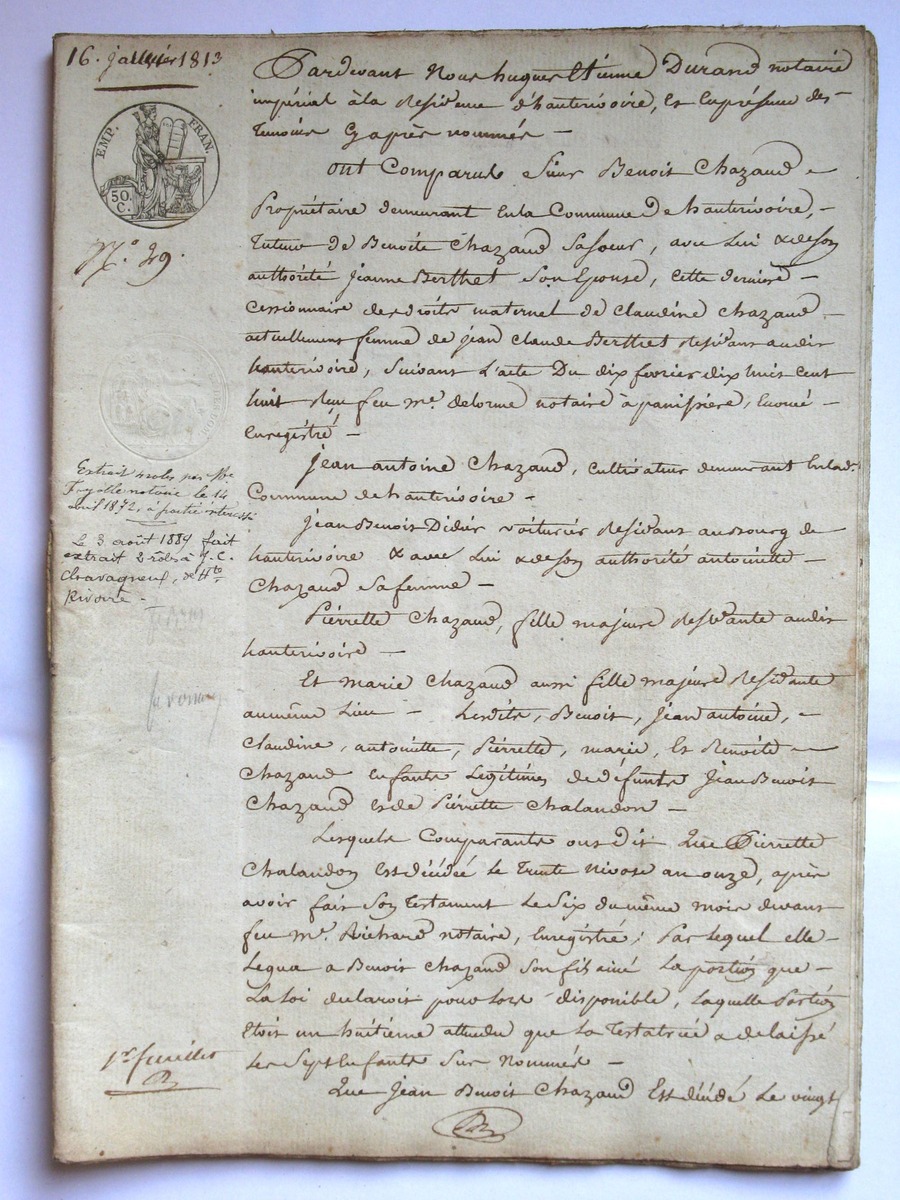 16. janvier 1813
EMP. FRAN.
50. C.
N.º 29.
Extrait roles par Me
notaire le 14
avril 1872, à partie
Le 3 août 1889 fait
extrait 2 rôles à J. C.
Chavagneux, de Hte
Rivoire -
1er feuillet
Pardevant Nous hugues Etienne Durand notaire
impérial à la Residence d'hauterivoire, Et Enpresence des
temoins Cyaprès nommés -
ont Comparus Sieur Benoit Chazaud
Propriétaire demeurant Enla Commune De hauterivoire, -
tuteur de Benoite Chazaud Sasoeur, avec Lui & deson
authorité jeanne Berthet Son Epouse, Cette derniere -
Cessionnaire des droits maternel de Claudine Chazaud -
actuellement femme de jean Claude Berthet Residant audit
hauterivoire, Suivant L'acte Du dix fevrier dix huit Cent
huit Reçu feu me. delorme notaire à panissiere,
Enregistré -
jean antoine Chazaud, Cultivateur demeurant Enlad.
Commune de hauterivoire -
jean Benoit Didier voiturier Residant aubourg de
hauterivoire & avec Lui & deson authorité antoinette -
Chazaud Safemme -
Pierrette Chazaud, fille majeure Residante audit
hauterivoire -
Et marie Chazaud aussi fille majeure Residante
aumême Lieu - Lesdits, Benoit, jean antoine, -
Claudine, antoinette, Pierrette, marie, Et Benoite -
Chazaud Enfants Legitimes de défunts Jean Benoit
Chazaud Et de Pierrette Chalandon -
Lesquels Comparants ont Dit Que Pierrette
Chalandon Est décédée Le Trente Nivose an onze, après
avoir fait Son Testament Le Six du même mois devant
feu me. Richard notaire, Enregistré; Par Lequel elle -
Legua a Benoit Chazaud Son fils ainé La portion que -
La Loi declaroit pour Lors disponible, Laquelle Portion
Etoit un huitieme attendu que La Testatrice a delaissé
Les Sept Enfants Sus Nommés -
Que Jean Benoit Chazaud Est décédé Le vingt